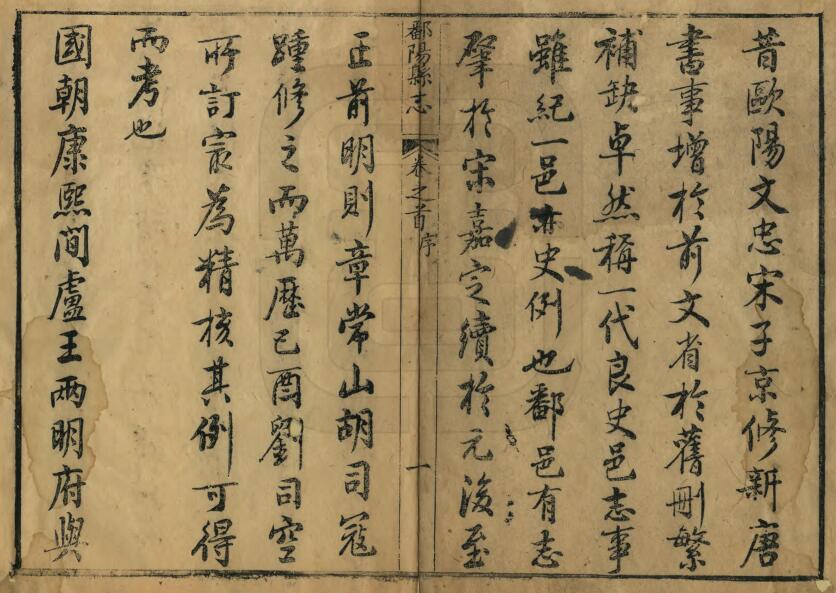 昔歐陽文忠宋子京修新唐
書事增於前文省於舊刪繁
補缺卓然稱一代良史邑志事
雖紀一邑亦史例也鄱邑有志
肇於宋嘉定續於元後至
鄱陽縣志 卷之首序 一
正前明則章常山胡司寇
踵修之而萬歷己酉劉司空
所訂最為精核其例可得
而考也
國朝康熙間盧王兩明府與